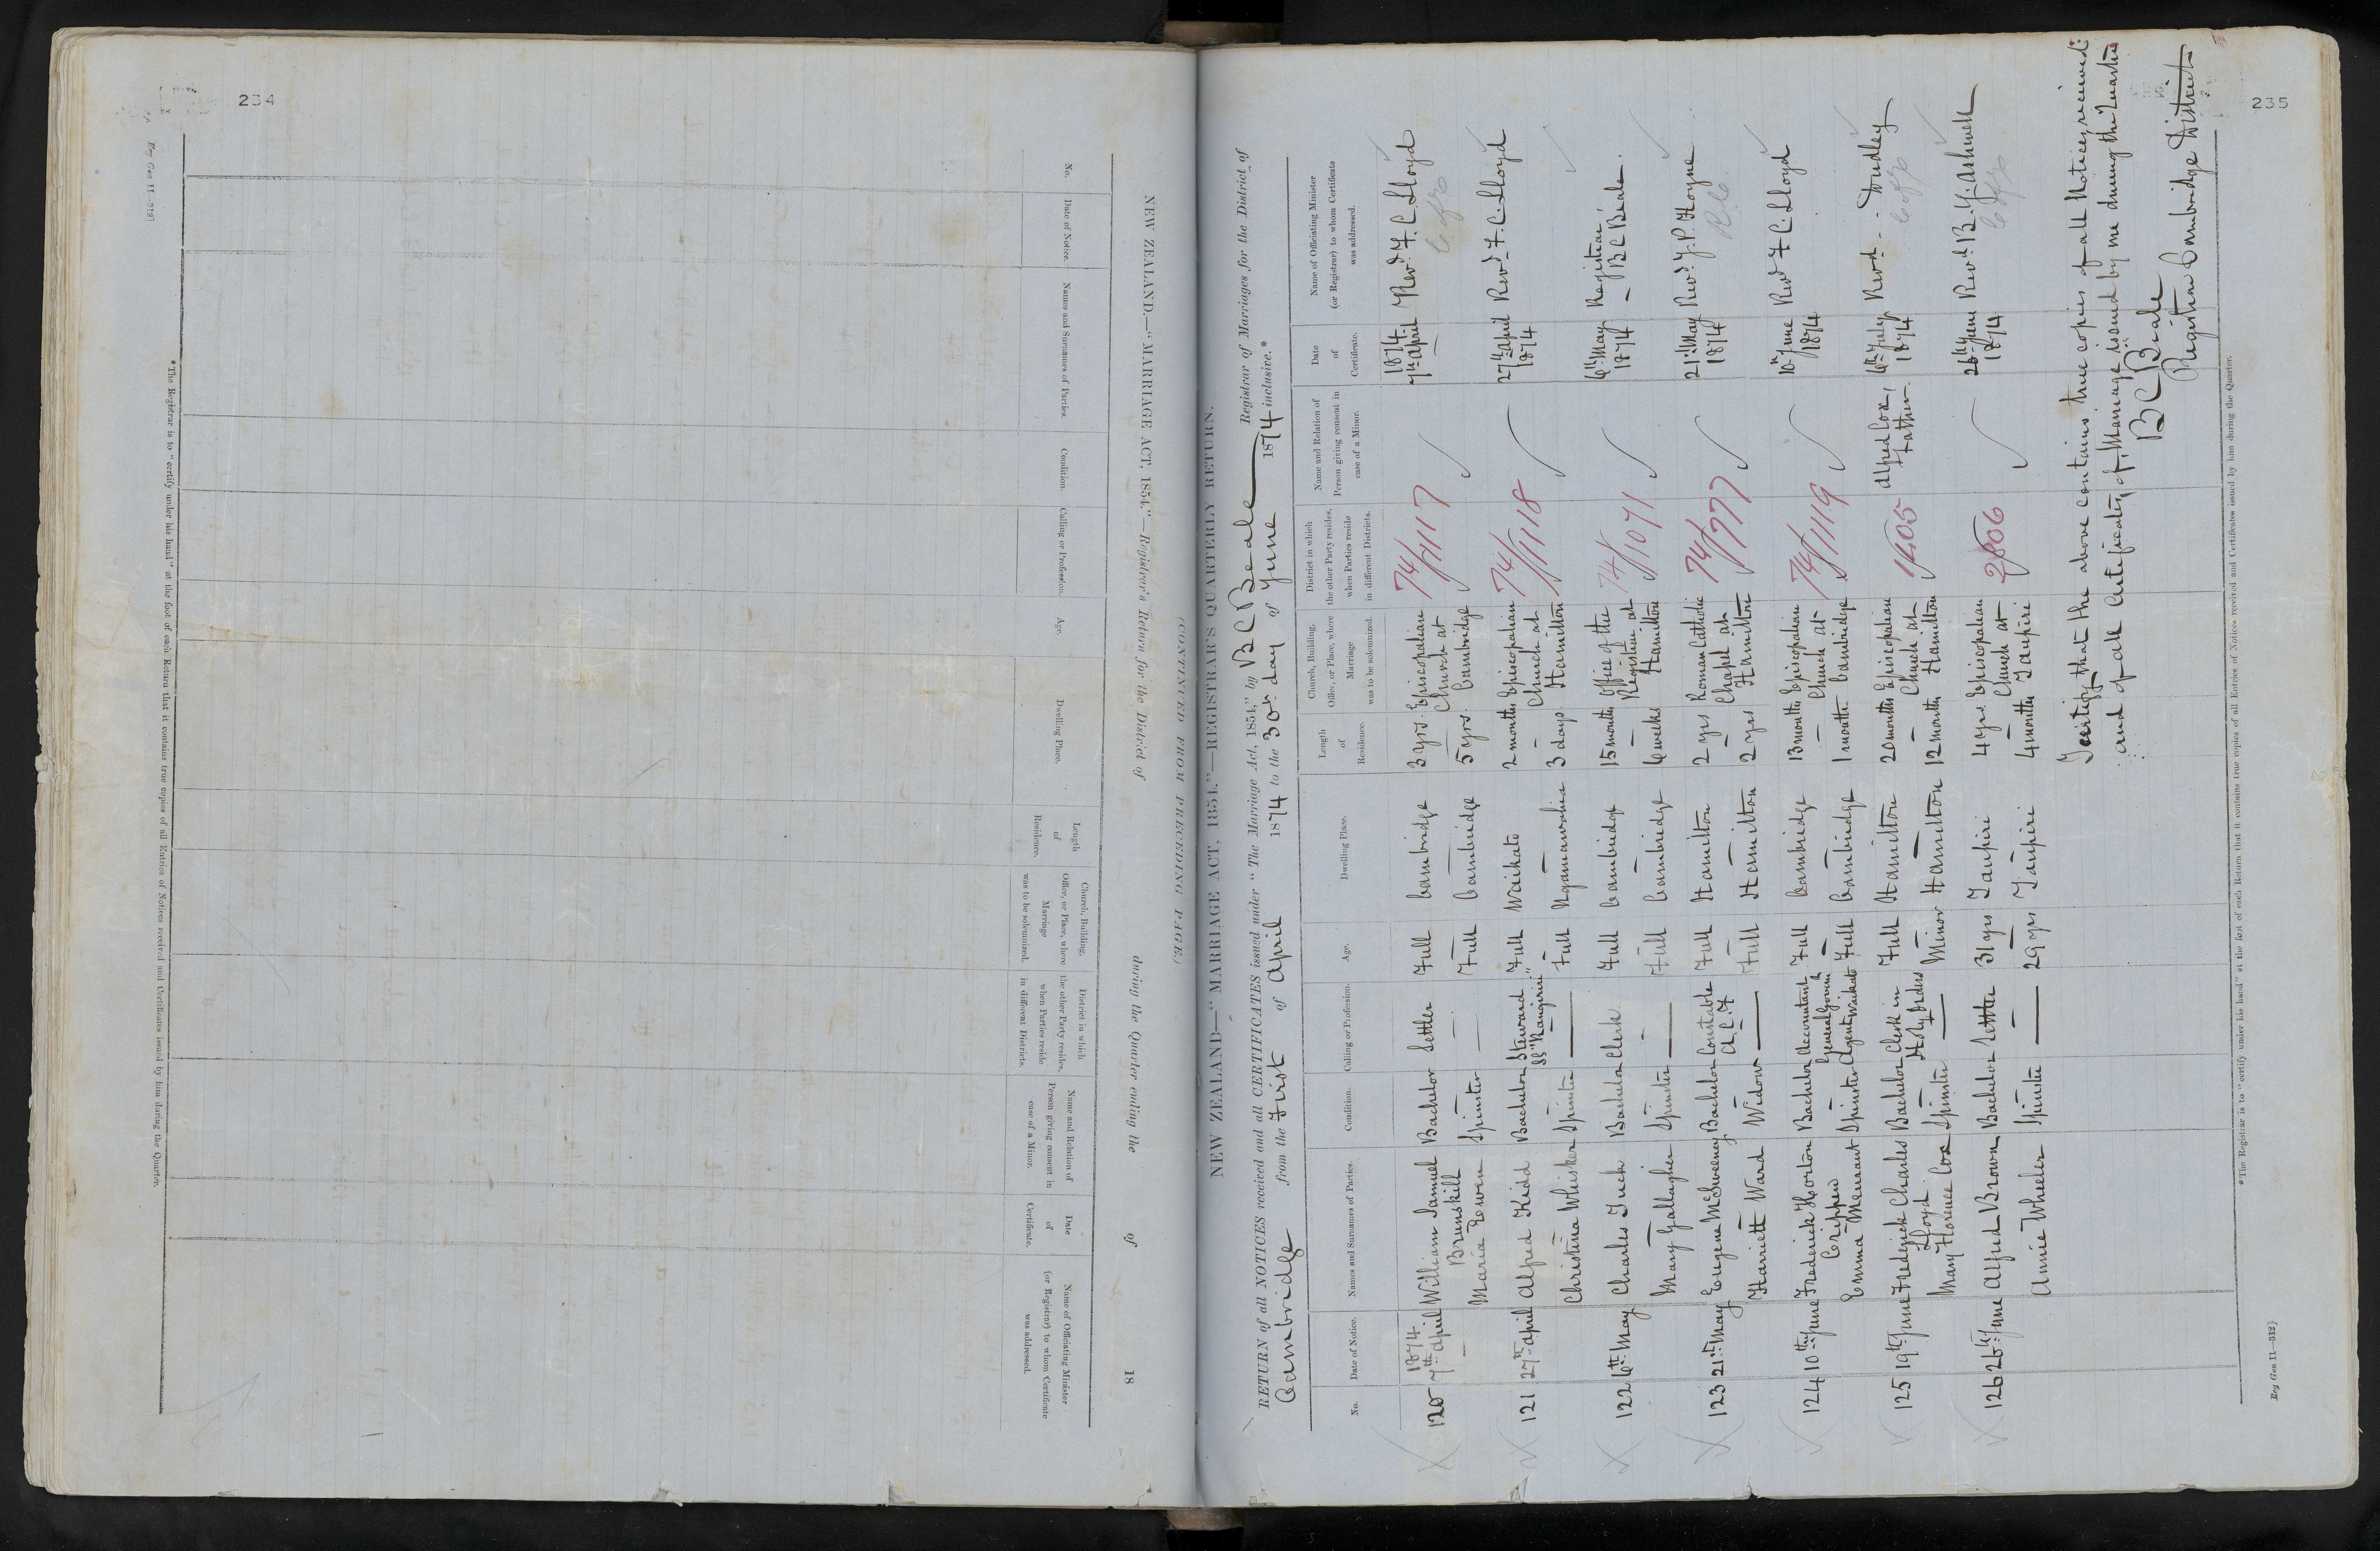 234
Reg Gen 11—312}
NEW ZEALAND.—"MARRIAGE ACT, 1854."—Registrar's Return for the District of during the Quarter ending the of 18
(CONTINUED FROM PRECEDING PAGE.)
No.
Date of Notice.
Names and Surnames of Parties.
Condition.
Calling or Profession.
Age.
Dwelling Place.
Length
of
Residence.
Church, Building,
Office, or Place, where
Marriage
was to be solemnized.
District in which
the other Party resides,
when Parties reside
in different Districts.
Name and Relation of
Person giving consent in
case of a Minor.
Date
of
Certificate.
Name of Officiating Minister
(or Registrar) to whom Certificate
was addressed.
*The Registrar is to "certify under his hand" at the foot of each Return that it contains true copies of all Entries of Notices received and Certificates issued by him during the Quarter.
235
NEW ZEALAND—"MARRIAGE ACT, 1854."—REGISTRAR'S QUARTERLY RETURN.
RETURN of all NOTICES received and all CERTIFICATES issued under "The Marriage Act, 1854," by B C Beale Registrar of Marriages for the District of
Cambridge from the First of April 1874 to the 30th day of June 1874 inclusive.*
No.
Date of Notice.
Names and Surnames of Parties.
Condition.
Calling or Profession.
Age.
Dwelling Place.
Length
of
Residence.
Church, Building,
Office, or Place, where
Marriage
was to be solemnized.
District in which
the other Party resides,
when Parties reside
in different Districts.
Name and Relation of
Person giving consent in
case of a Minor.
Date
of
Certificate.
Name of Officiating Minister
(or Registrar) to whom Certificate
was addressed.
1874 1874
120 7th April William Samuel Bachelor Settler Full Cambridge 3 yrs. Episcopalian 74/1117 7th April Revd. F. C. Lloyd
Brunskill Church at C of E
Maria Rowen Spinster — Full Cambridge 5 yrs. Cambridge
121 27th April Alfred Kidd Bachelor Steward Full Waikato 2 months Episcopalian 74/1118 27th April Revd. F. C. Lloyd
SS "Rangiriri" Church at 1874
Christina Whisker Spinster — Full Ngaruawahia 3 days Hamilton
122 6th May Charles Tuck Bachelor Clerk Full Cambridge 15 months Office of the 74/1071 6th May Registrar
Registrar at 1874 B C Beale.
Mary Gallagher Spinster — Full Cambridge 6 weeks Hamilton
123 21st May Eugene McSweeney Bachelor Constable Full Hamilton 2 yrs Roman Catholic 74/777 21st May Revd. J. P. Hoyne
A.C.F. Chapel at 1874 R C.
Harriett Ward Widow — Full Hamilton 2 yrs Hamilton
124 10th June Frederick Horton Bachelor Accountant Full Cambridge 13 months Episcopalian 74/1119 10th June Revd F C Lloyd
Crippen General Govmt Church at 1874
Emma Meurant Spinster Agent Waikato Full Cambridge 1 month Cambridge
125 19th June Frederick Charles Bachelor Clerk in Full Hamilton 20 months Episcopalian 1405 Alfred Cox, 6th July Revd. - Dudley
Lloyd Holy Orders Church at Father 1874 C of E
Mary Florence Cox Spinster — Minor Hamilton 12 month Hamilton
126 26th June Alfred Brown Bachelor Settler 31 yrs Taupiri 4 yrs Episcopalian 2806 26th June Revd. B. Y. Ashwell
Church at 1874 C of E
Annie Wheeler Spinster — 29 yrs Taupiri 4 months Taupiri
I certify that the above contains true copies of all Notices received
and of all Certificates of Marriage issued by me during the Quarter
B C Beale
Registrar Cambridge District
*The Registrar is to "certify under his hand" at the foot of each Return that it contains true copies of all Entries of Notices received and Certificates issued by him during the Quarter.
Reg Gen 11—312}